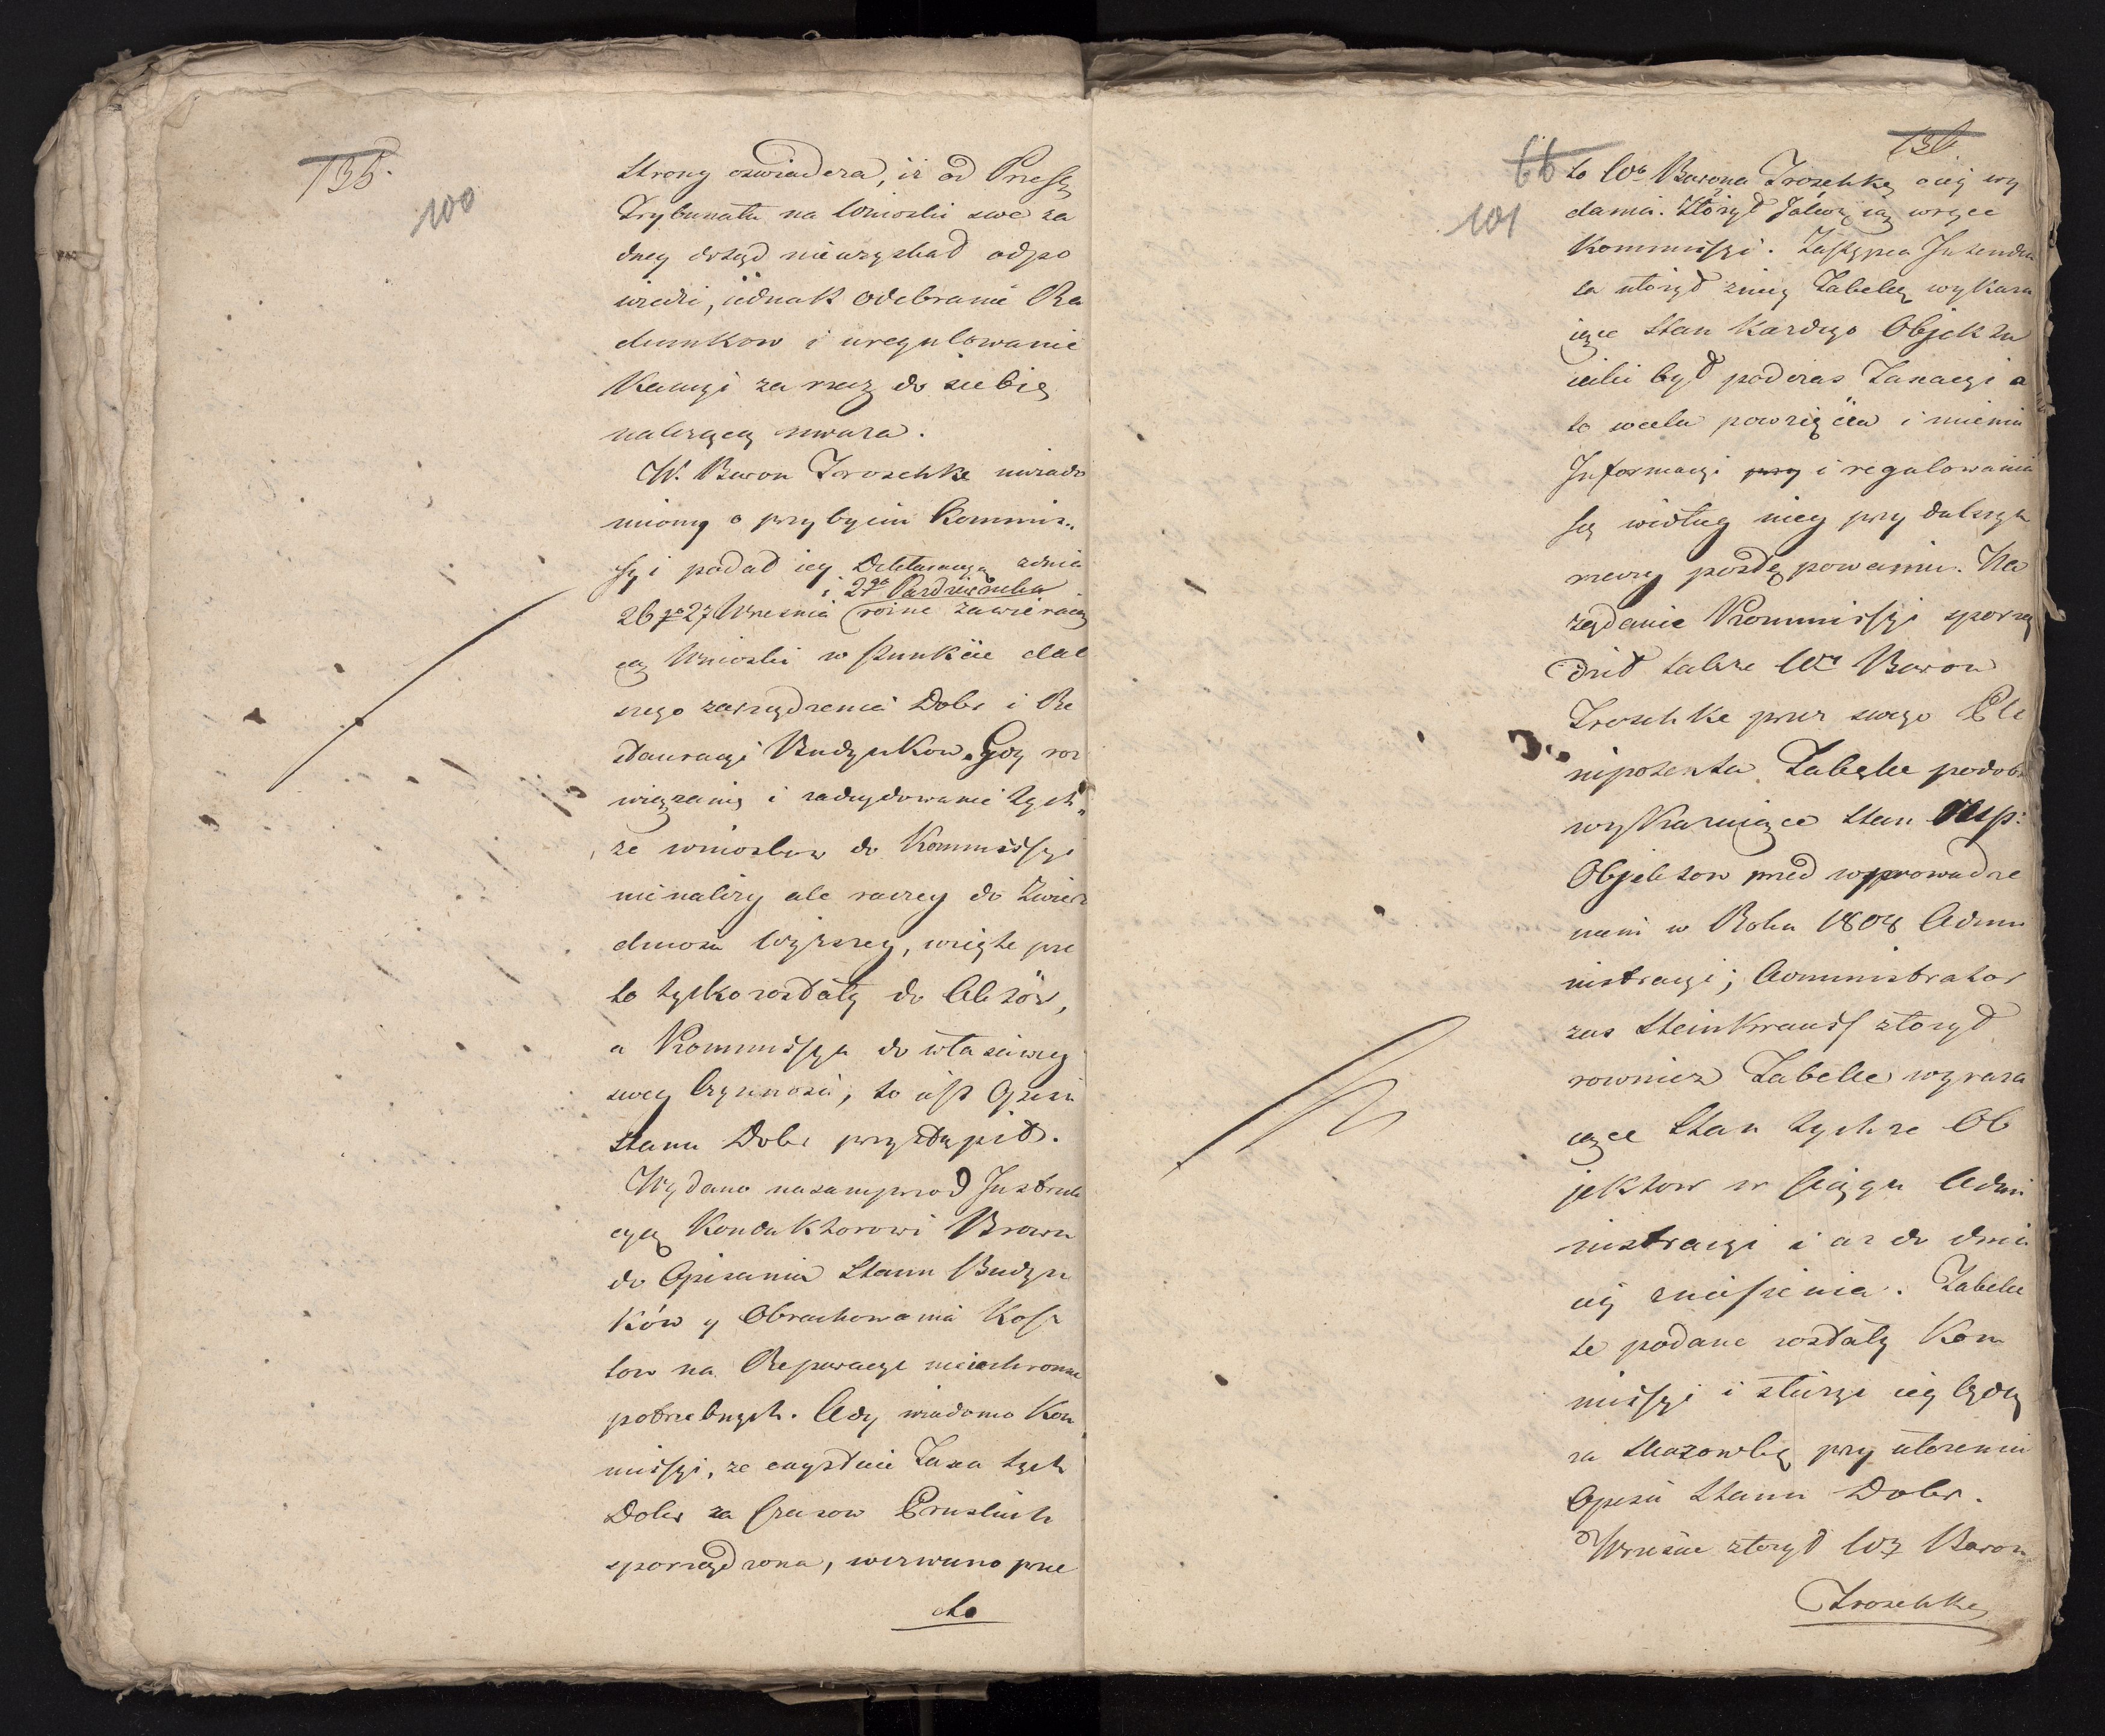 135.
100
Strony oswiadcza, iż od Prześ:
Trybunału na Wnioski swe ża
dney dotąd nieuzyskał odpo
wiedzi, iednak odebranie Ra
chunkow i uregulowanie
Kaucyi za rzecz do siebie
należącą uważa.
W. Baron Troschke uwiado
miony o przybyciu Kommis„
syi podał iey Deklaracyą z dnia
i 2go Pazdziernika
26 go 27 Wrzesnia rożne zawieraią
cą Wnioski w punkcie dal
szego zarządzenia Dobr i Re
stauracyi Budynkow. Gdy roz
wiązanie i zadecydowanie tych„
że wniosków do Kommissyi
nienależy ale raczey do Zwierz
chności Wyższey, wzięte prze
to tylko zostały do Aktów,
a Kommissya do własciwey
swey Czynności, to iest Opisu
Stanu Dobr przystąpiła.
Wydano nasamprzod Instruk
cyą Konduktorowi Brown
do Opisania Stanu Budyn
ków y Obrachowania Kosz
tow na Reperacye nieuchronnie
potrzebnych. Gdy wiadomo Kom
missyi, że exystuie Taxa tych
Dobr za Czasow Pruskich
sporządzona, wezwano prze
to
66
136
101
to Wo Barona Troschke o iey wy
danie. Złożył Takową w ręce
Kommissyi. Zastępca Intenden
ta ułożył z niey Tabelę wykazu
iące Stan Każdego Objektu
iaki był podczas Taxacyi a
to w celu powzięcia i mienia
Informacyi przy i regulowania
się według niey przy dalszym
rzeczy postępowaniu. Na
żądanie Kommissyi sporzą
dził także Wny Baron
Troschke przez swego Ple
nipotenta Tabelle podobne
wykazuiące Stan Resp:
Objektow przed wprowadze
niem w Roku 1808 Admi
nistracyi; Administrator
zas Steinkrauss złożył
rowniez Tabelle wyraża
iące Stan tychże Ob
jektow w Ciągu Admi
nistracyi i aż do dnia
iey zniesienia. Tabelle
te podane zostały Kom
missyi i służyć iey będą
za Skazowkę przy ułożeniu
Opisu Stanu Dobr.
Wreście złożył W. Baron
Troschke